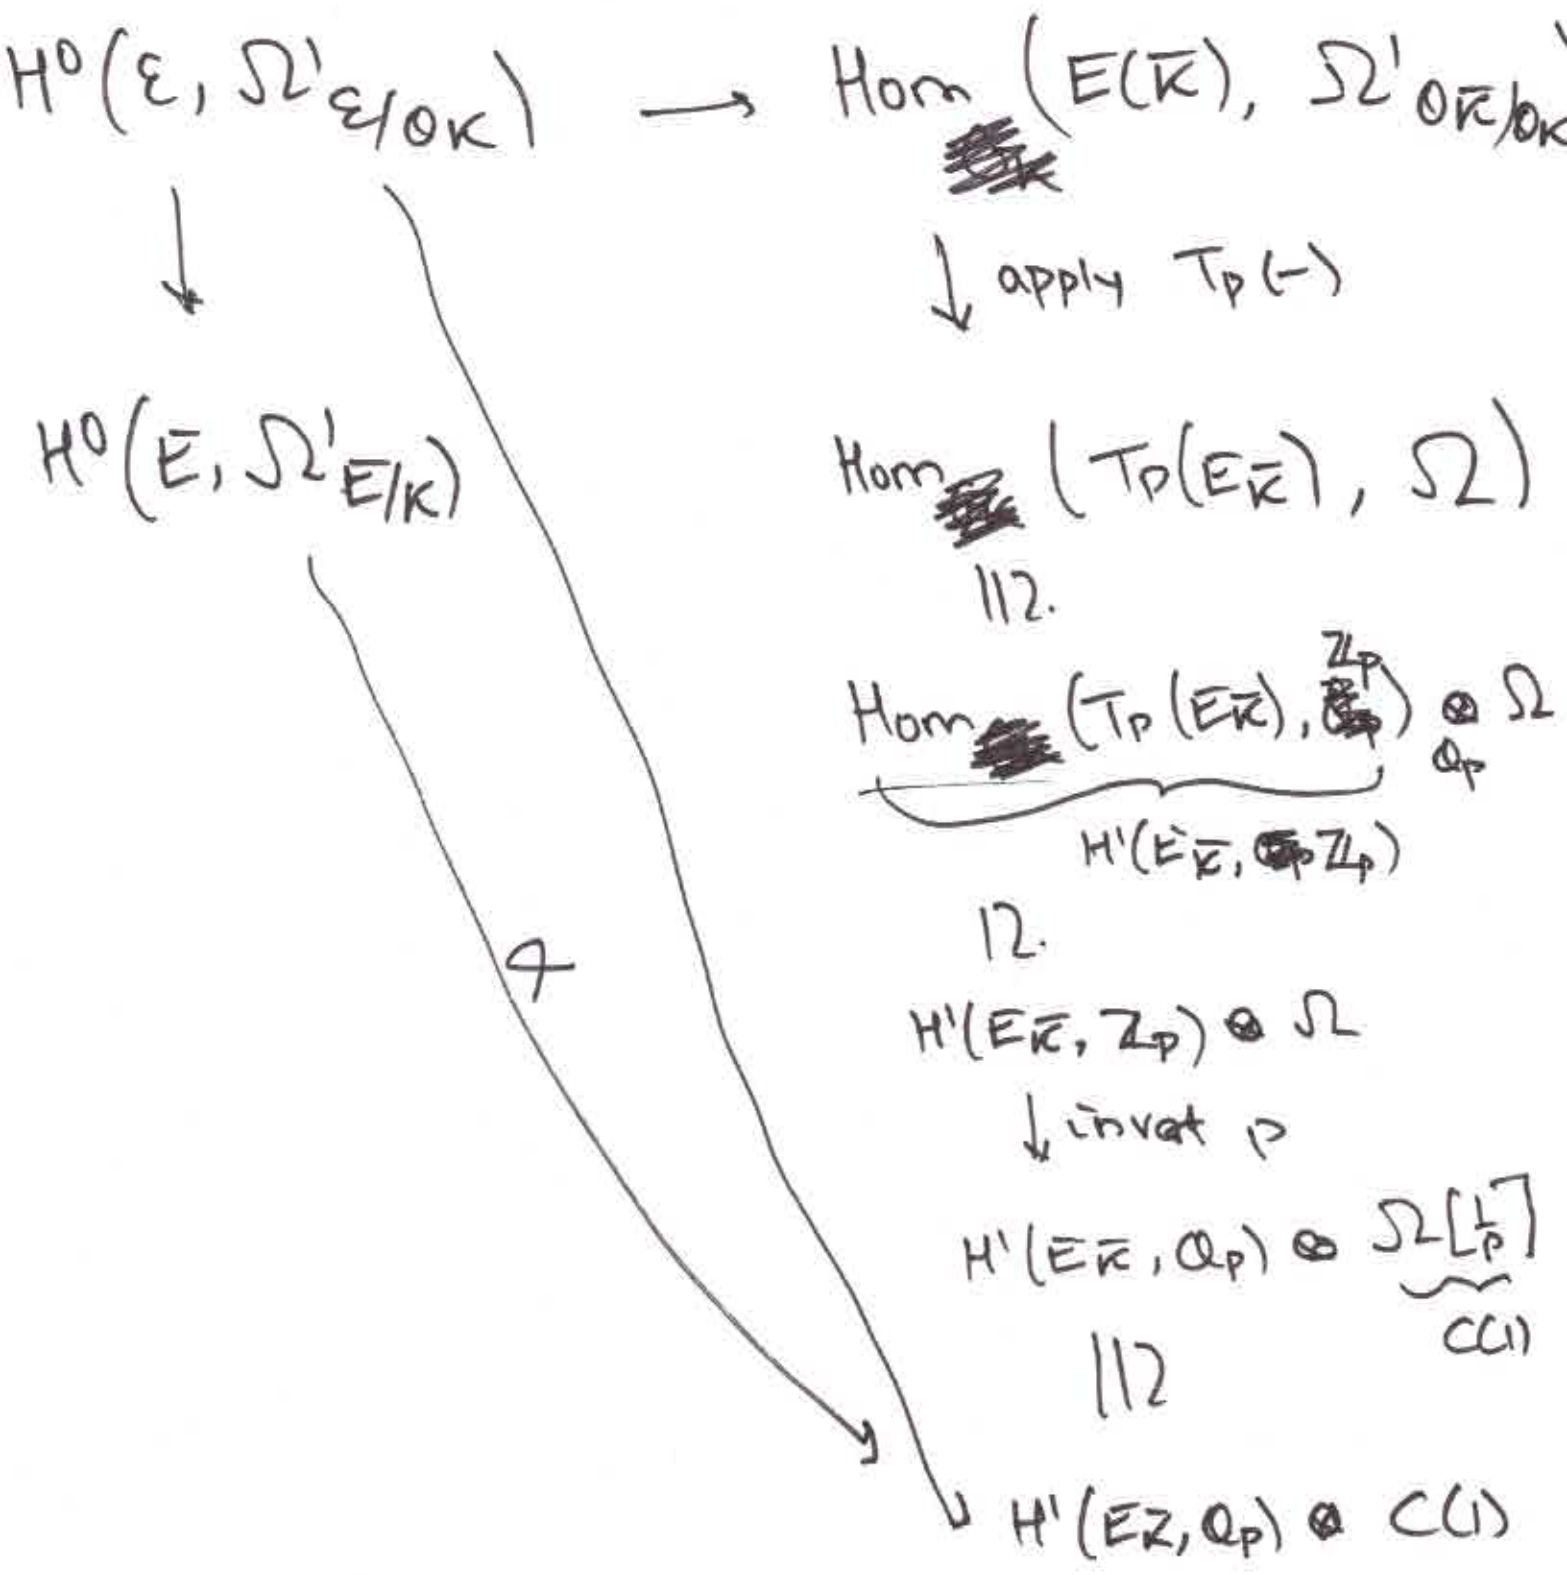 H⁰(ℰ, Ω¹_{ℰ/𝒪_K}) → Hom (E(K̄), Ω¹_{𝒪_K̄/𝒪_K})
↓ ↓ apply T_p(-)
H⁰(E, Ω¹_{E/K}) Hom (T_p(E_K̄), Ω)
||2.
Hom (T_p(E_K̄), ℤ_p) ⊗_{ℚ_p} Ω
H¹(E_K̄, ℤ_p)
12.
H¹(E_K̄, ℤ_p) ⊗ Ω
↓ invert p
H¹(E_K̄, ℚ_p) ⊗ Ω[1/p]
C(1)
||2
H¹(E_K̄, ℚ_p) ⊗ C(1)